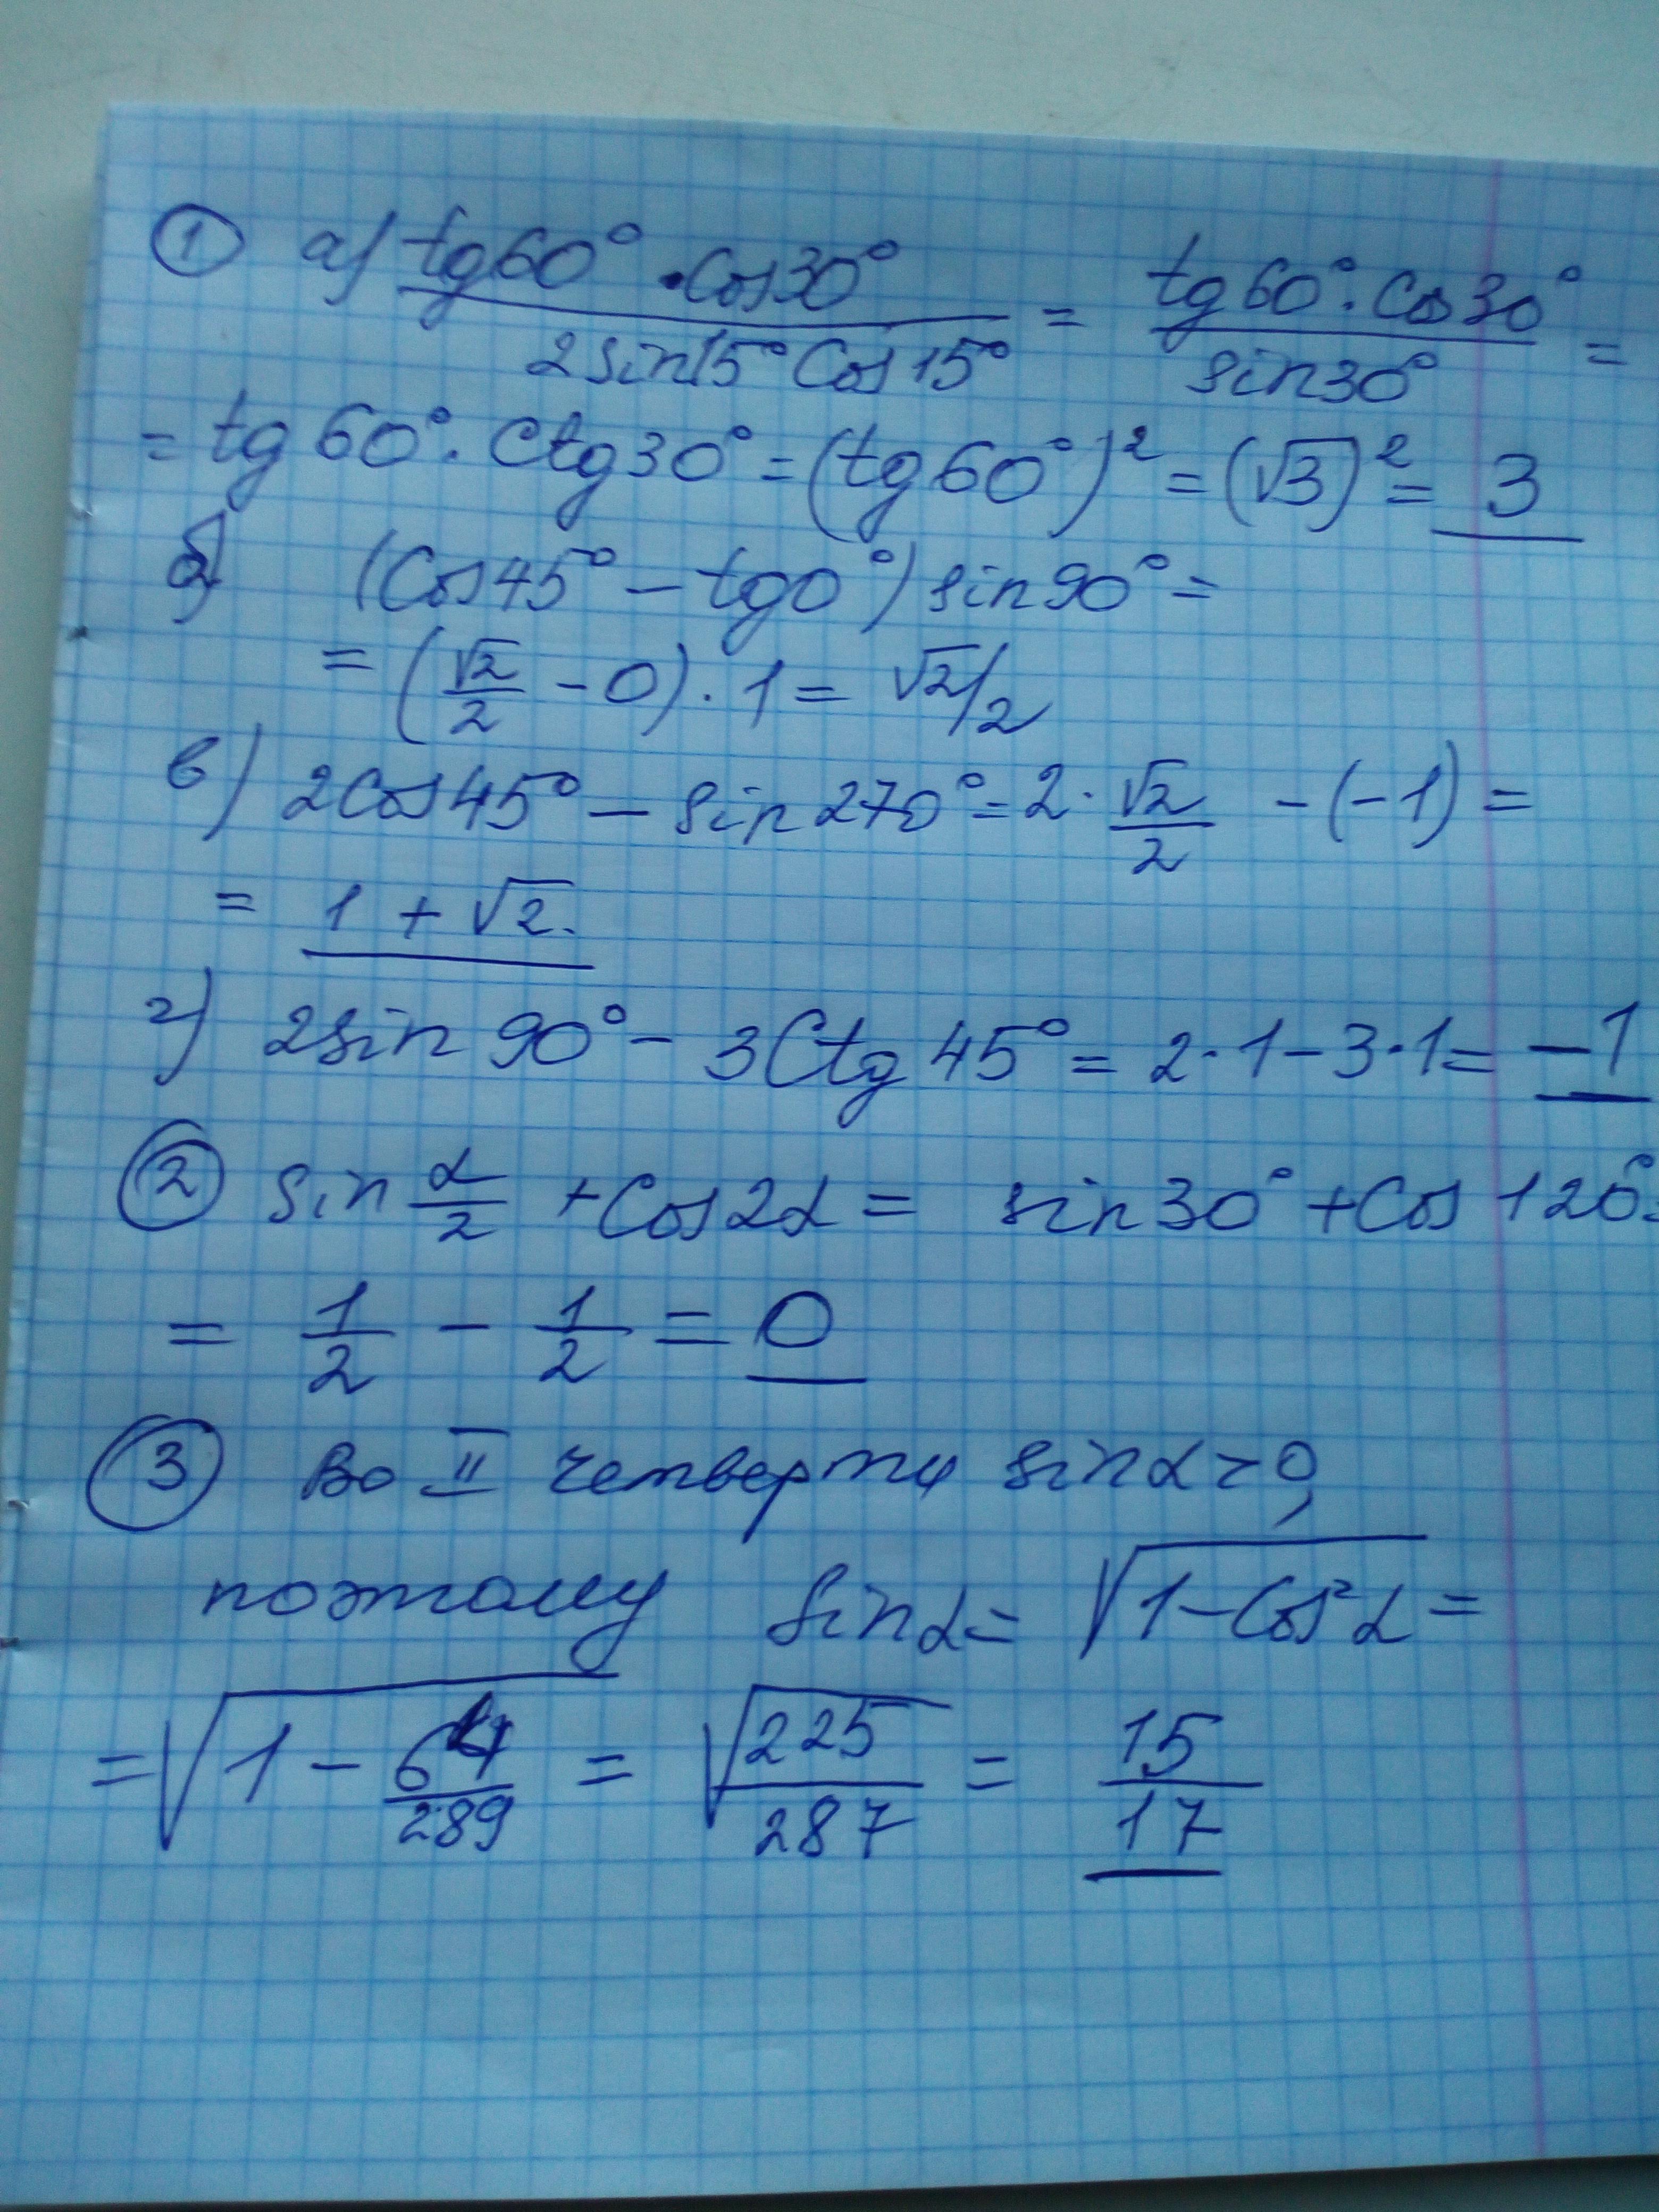 ① а) tg60°·Cos30° / 2sin15°Cos15° = tg60°·Cos30° / sin30° =
= tg60°·Ctg30° = (tg60°)² = (√3)² = 3
б) (Cos45° – tg0°) sin90° =
= (√2/2 – 0)·1 = √2/2
в) 2Cos45° – sin270° = 2·√2/2 – (–1) =
= 1 + √2.
г) 2sin90° – 3Ctg45° = 2·1 – 3·1 = –1
② sin α/2 + Cos2α = sin30° + Cos120° =
= 1/2 – 1/2 = 0
③ Во II четверти sinα > 0,
поэтому sinα = √(1 – Cos²α) =
= √(1 – 64/289) = √(225/287) = 15/17